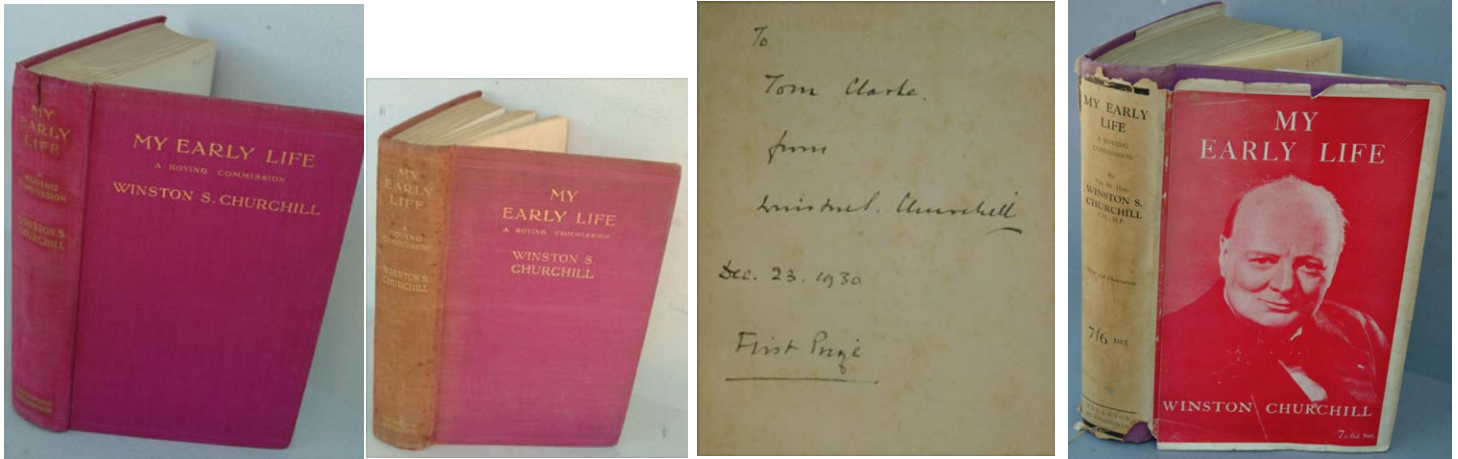 MY
EARLY
LIFE
A
ROVING
COMMISSION
WINSTON S.
CHURCHILL
MY EARLY LIFE
A ROVING COMMISSION
WINSTON S. CHURCHILL
MY
EARLY
LIFE
A
ROVING
COMMISSION
WINSTON S.
CHURCHILL
MY
EARLY LIFE
A ROVING COMMISSION
WINSTON S.
CHURCHILL
To
Tom Clarke.
from
Winston S. Churchill
Dec. 23. 1930
First Prize
MY EARLY
LIFE
A ROVING
COMMISSION
By
The Rt. Hon.
WINSTON S.
CHURCHILL
C.H., M.P.
7/6 net
MY
EARLY LIFE
WINSTON CHURCHILL